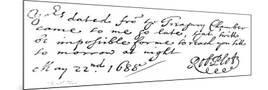 Yrs dated from ye Treasury Chamber
came to me so late, that 'twill
be impossible for me to reach you till
to morrow at night
May 22nd. 1688 Rob. Plot